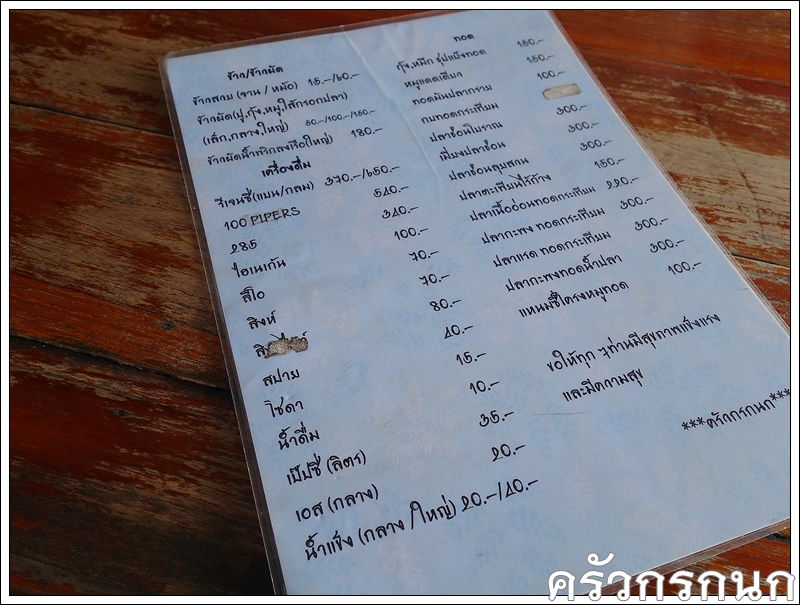 ข้าว/ข้าวผัด
ข้าวสวย (จาน / หม้อ) 15.-/60.-
ข้าวผัด(ปู,กุ้ง,หมู,ไส้กรอกปลา)
(เล็ก,กลาง,ใหญ่) 50.-/100.-/150.-
ข้าวผัดน้ำพริกลงเรือ(ใหญ่) 180.-
เครื่องดื่ม
รีเจนซี่(แบน/กลม) 370.-/650.-
100 PIPERS 540.-
285 340.-
ไฮเนเก้น 100.-
ลีโอ 70.-
สิงห์ 70.-
80.-
สปาย 40.-
โซดา 15.-
น้ำดื่ม 10.-
เป๊ปซี่ (ลิตร) 35.-
เอส (กลาง) 20.-
น้ำแข็ง (กลาง /ใหญ่) 20.-/40.-
ทอด
กุ้ง,หมึก ชุปแป้งทอด 150.-
หมูแดดเดียว 150.-
ทอดมันปลากราย 100.-
กบทอดกระเทียม
ปลาช่อนโบราณ 300.-
เมี่ยงปลาช่อน 300.-
ปลาช่อนลุยสวน 300.-
ปลาตะเพียนไร้ก้าง 150.-
ปลาเนื้ออ่อนทอดกระเทียม 220.-
ปลากะพง ทอดกระเทียม 300.-
ปลาแรด ทอดกระเทียม 300.-
ปลากะพงทอดน้ำปลา 300.-
แหนมซี่โครงหมูทอด 100.-
ขอให้ทุก ๆท่านมีสุขภาพแข็งแรง
และมีความสุข
***ครัวกรกนก***
ครัวกรกนก